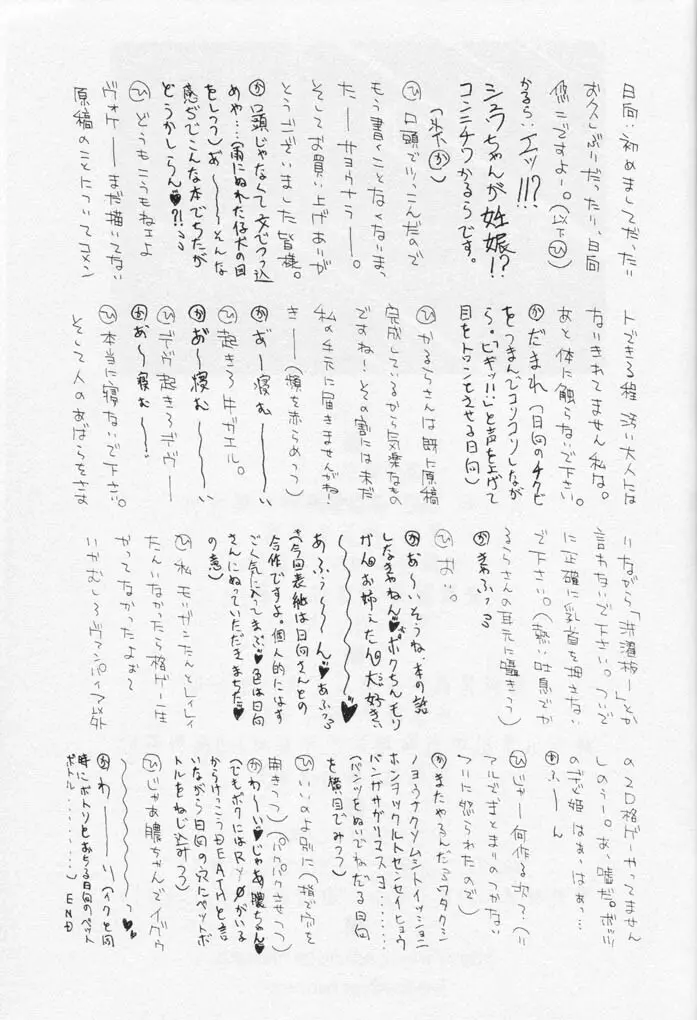 日向:初めましてだったり
お久しぶりだったり、日向
悠二ですよー。(以下㋪)
かるら:エッ!!?
シュワちゃんが妊娠!?
コンニチワかるらです。
(以下㋕)
㋪口頭でツッこんだので
もう書くことなくないまっ
たーーサヨウナラーー。
そしてお買い上げありが
とうございました皆様。
㋕口頭じゃなくて文でつっ込
めや…(雨にぬれた仔犬の目
をしつつ)あ〜〜〜そんな
感ぢでこんな本でちたが
どうかしらん♥?!
㋪どうもこうもねェよ
ヴォケーーまだ描いてない
原稿のことについてコメン
トできる程汚い大人には
なりきれてません私は。
あと体に触らないで下さい。
㋕だまれ(日向のチクビ
をつまんでコリコリしなが
ら。「ピギッ!!」と声を上げて
目をトロンとさせる日向)
㋪かるらさんは既に原稿
完成しているから気楽なもの
ですね!その割には未だ
私の手元に届きませんがね!
きーー(頬を赤らめつつ)
㋕あ゛ー寝む〜〜〜い
㋪起きろ牛ガエル。
㋕あ゛〜寝む〜〜〜い
㋪デヴ起きろデヴーー
㋕あ゛〜寝む〜〜
㋪本当に寝ないで下さい。
そして人のあばらをさす
りながら「洗濯板ー」とか
言わないで下さい。ついで
に正確に乳首を押さない
で下さい。(熱い吐息でか
るらさんの耳元に囁きつつ)
㋕きゃふっ
㋪おい。
㋕あ〜いそうね、本の話
しなきゃねん♥ボクちんモリ
がんお姉えたん大好き
〜〜〜〜〜〜♥
あふぅ〜〜〜ん♥あふっ
(今回表紙は日向さんとの
合作ですよ。個人的にはす
ごく気に入ってまふ♥色は日向
さんにぬっていただきまちた♥
の意)
㋪私モリガンたんとレイレイ
たんいなかったら格ゲー一生
やってなかったよおー
いやむしろヴァンパイア以外
の2D格ゲーやってません
しのぅー。あ、嘘だ。ボッ!!!
のぎ姫はぁ、はぁっ…
㋕ふーん
㋪じゃー何作る次ァ?(リ
アルでまとまりのつかない
アリに怒られたので)
㋕またやるんだ?ワタクシ
ノョウナクソムシトイッショニ
ホンヲツクルトセンセイヒョウ
バンガサガリマスヨ………
(パンツをぬいでねだる日向
を横目でみつつ)
㋪いいのよ別に(指で穴を
開きつつ)(パクパクさせつつ)
㋕わ〜い♥じゃあ朧ちゃん♥
(でもボクにはRYOがいる
からけっこうDEATHと言
いながら日向の穴にペットボ
トルをねじ込みつつ)
㋪じゃあ朧ちゃんでイグゥ
〜〜〜〜〜〜〜っ♥
㋕わーーーーい(イクと同
時にボトリとおちる日向のペット
ボトル………) END